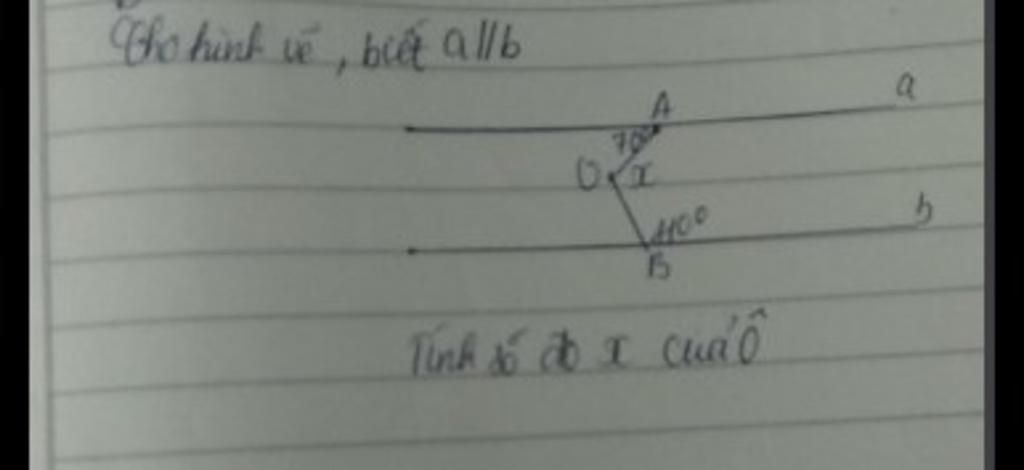 Cho hình vẽ, biết a//b
a
A
70°
O x
b
110°
B
Tính số đo x của Ô